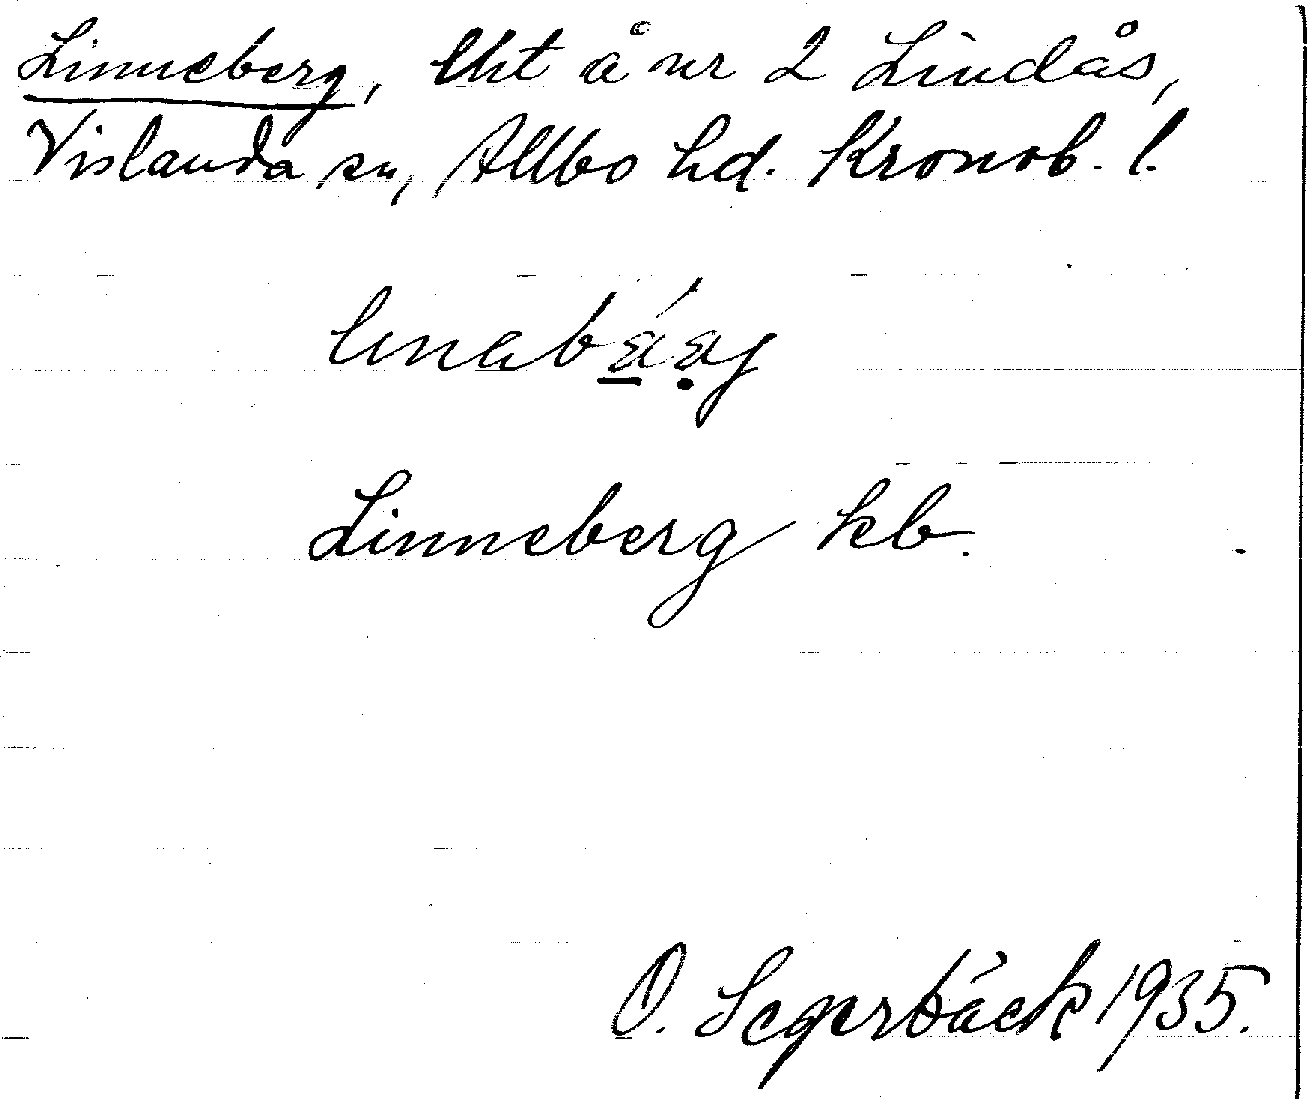 Linneberg, lht å nr 2 Lindås,
Vislanda sn, Allbo hd. Kronob. l.
Linneberg kb.
O. Segerbäck 1935.